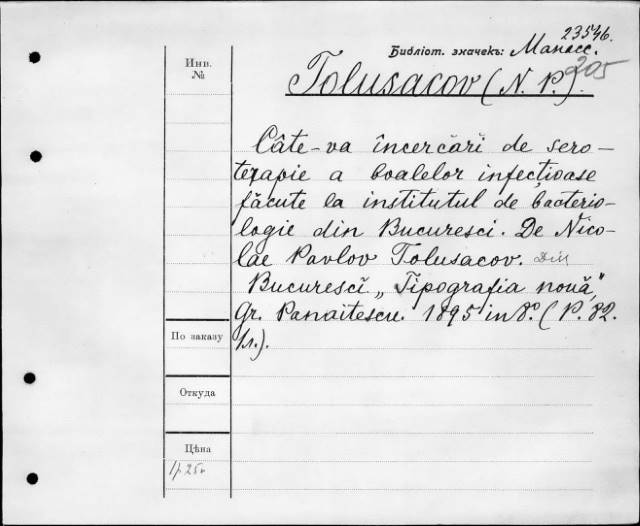 23546.
Библіот. значекъ: Манасс.
205
Инв.
№
Tolusacov (N. P.)
Câte-va încercări de sero-
terapie a boalelor infecțioase
făcute la institutul de bacterio-
logie din Bucuresci. De Nico-
lae Pavlov Tolusacov. Din
Bucurescĭ „Tipografia nouă”
Gr. Panaitescu. 1895 in 8º. (P. 82.
1л.).
По заказу
Откуда
Цѣна
1р 25к